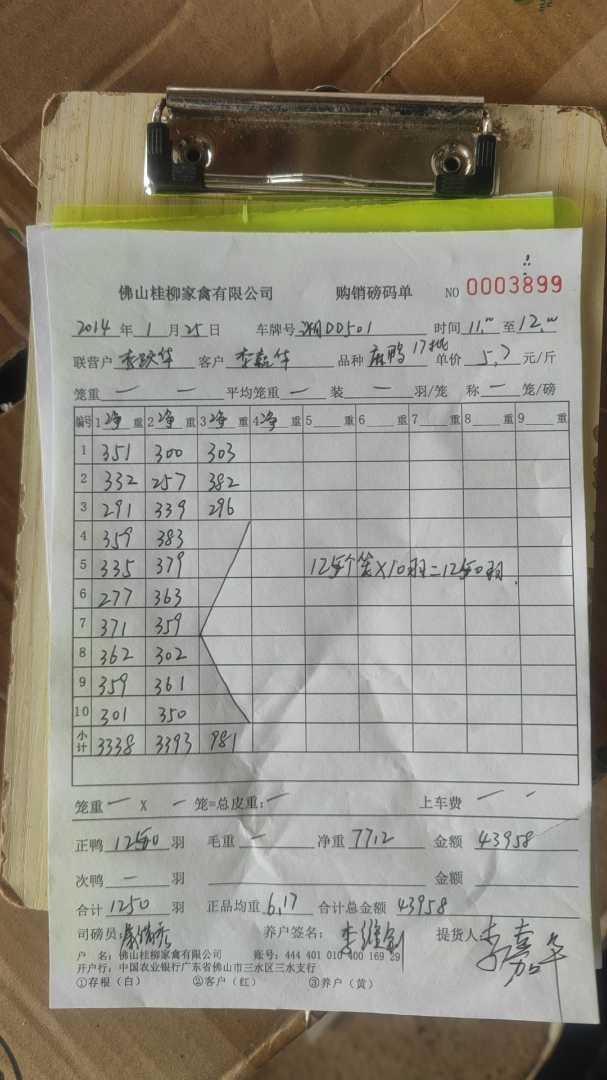 佛山桂柳家禽有限公司 购销磅码单 NO 0003899
2014 年 1 月 25 日 车牌号 湘DD501 时间 11.00 至 12.00
联营户 客户 李嘉华 品种 麻鸭 17批 单价 5.7 元/斤
笼重 一 一 平均笼重 一 装 一 羽/笼 称 一 笼/磅
编号 1 净 重 2 净 重 3 净 重 4 净 重 5 重 6 重 7 重 8 重 9 重
1 351 300 303
2 332 257 382
3 291 339 296
4 359 383
5 335 379 125个笼×10羽=1250羽.
6 277 363
7 371 359
8 362 302
9 359 361
10 301 350
小计 3338 3393 981
笼重 一 X 一 笼=总皮重: 一 上车费 一 一
正鸭 1250 羽 毛重 一 净重 7712 金额 43958
次鸭 一 羽 金额
合计 1250 羽 正品均重 6.17 合计总金额 43958
司磅员: 养户签名: 提货人 李嘉华
户 名: 佛山桂柳家禽有限公司 账号: 444 401 010 400 169 29
开户行: 中国农业银行广东省佛山市三水区三水支行
①存根（白） ②客户（红） ③养户（黄）